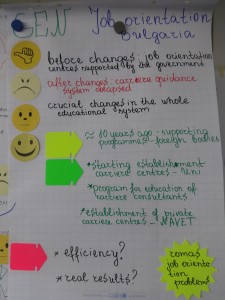 SEN
Job orientation
Bulgaria
before changes: job orientation
centres supported by the government
after changes: carriere guidance
system collapsed
crucial changes in the whole
educational system
≈ 10 years ago - supporting
programmes - foreign bodies
* starting establishment
carriere centres - Uni
* program for education of
carriere consultants
* establishment of private
carriere centres - NAVET
* efficiency?
* real results?
romas
job orienta
tion
problems